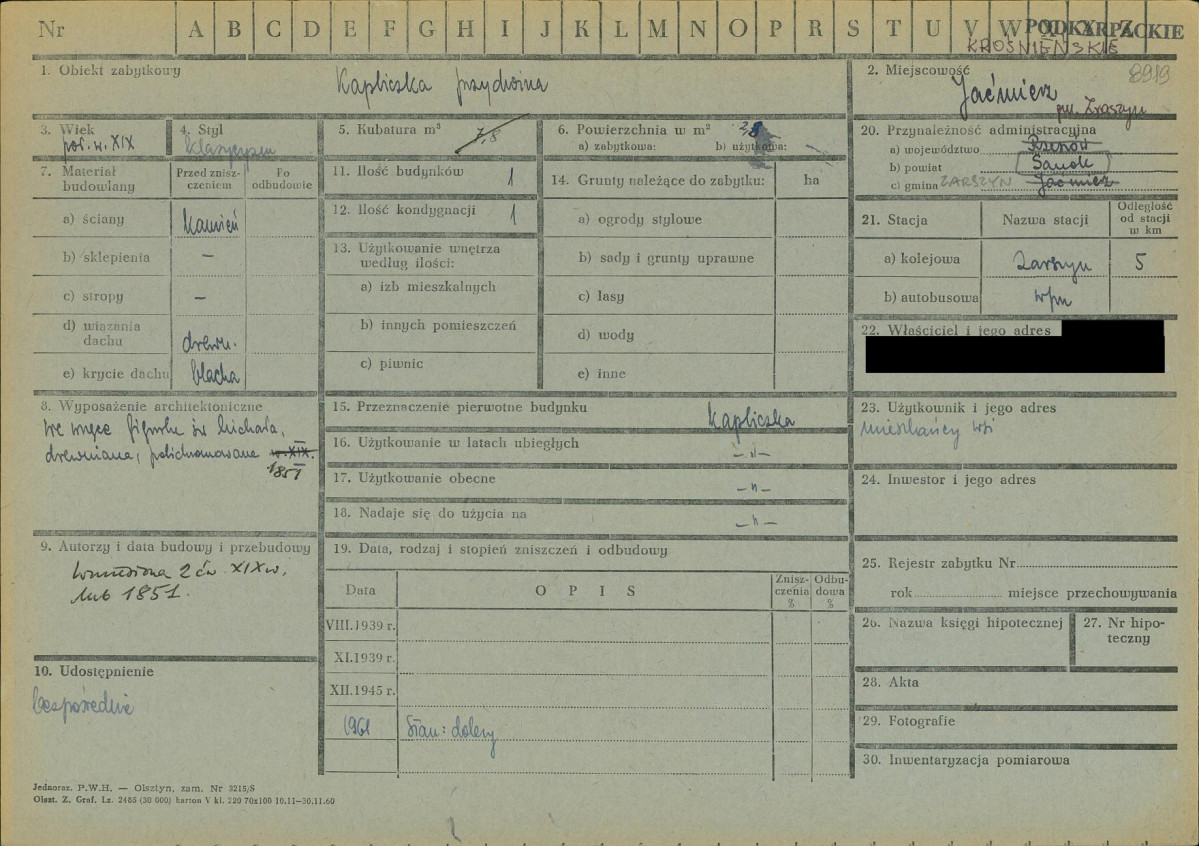 Nr A B C D E F G H I J K L M N O P R S T U V W X Y Z
PODKARPACKIE
KROŚNIEŃSKIE
1. Obiekt zabytkowy
Kapliczka przydrożna
2. Miejscowość
8919
Jaćmierz
3. Wiek
poł. w. XIX
4. Styl
klasycyzm
5. Kubatura m³
7,8
6. Powierzchnia w m²
a) zabytkowa: b) użytkowa:
20. Przynależność administracyjna
a) województwo Rzeszów
b) powiat Sanok
c) gmina ZARSZYN Jaćmierz
7. Materiał budowlany
Przed zniszczeniem
Po odbudowie
a) ściany kamień
b) sklepienia –
c) stropy –
d) wiązania dachu drewn.
e) krycie dachu blacha
11. Ilość budynków 1
12. Ilość kondygnacji 1
13. Użytkowanie wnętrza
według ilości:
a) izb mieszkalnych
b) innych pomieszczeń
c) piwnic
14. Grunty należące do zabytku: ha
a) ogrody stylowe
b) sady i grunty uprawne
c) lasy
d) wody
e) inne
21. Stacja
Nazwa stacji
Odległość od stacji w km
a) kolejowa Zarszyn 5
b) autobusowa
22. Właściciel i jego adres
8. Wyposażenie architektoniczne
we wnęce figurka św Michała,
drewniana, polichromowana w. XIX.
1851
15. Przeznaczenie pierwotne budynku kapliczka
16. Użytkowanie w latach ubiegłych –"–
17. Użytkowanie obecne –"–
18. Nadaje się do użycia na –"–
23. Użytkownik i jego adres
mieszkańcy wsi
24. Inwestor i jego adres
9. Autorzy i data budowy i przebudowy
Wzniesiona 2 ćw. XIX w.
lub 1851.
19. Data, rodzaj i stopień zniszczeń i odbudowy
Data
OPIS
Zniszczenia %
Odbudowa %
VIII.1939 r.
XI.1939 r.
XII.1945 r.
1961 Stan: dobry
25. Rejestr zabytku Nr
rok miejsce przechowywania
26. Nazwa księgi hipotecznej
27. Nr hipoteczny
28. Akta
29. Fotografie
30. Inwentaryzacja pomiarowa
10. Udostępnienie
bezpośrednie
Jednoraz. P.W.H. — Olsztyn, zam. Nr 3215/S
Olszt. Z. Graf. Lz. 2485 (30 000) karton V kl. 220 70x100 10.11—30.11.60